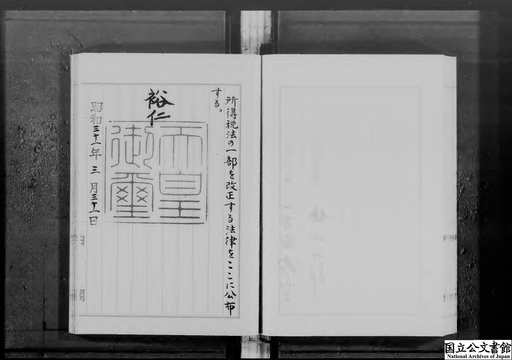 所得税法の一部を改正する法律をここに公布
する。
裕仁
天皇
御璽
昭和三十一年三月三十一日
国立公文書館
National Archives of Japan